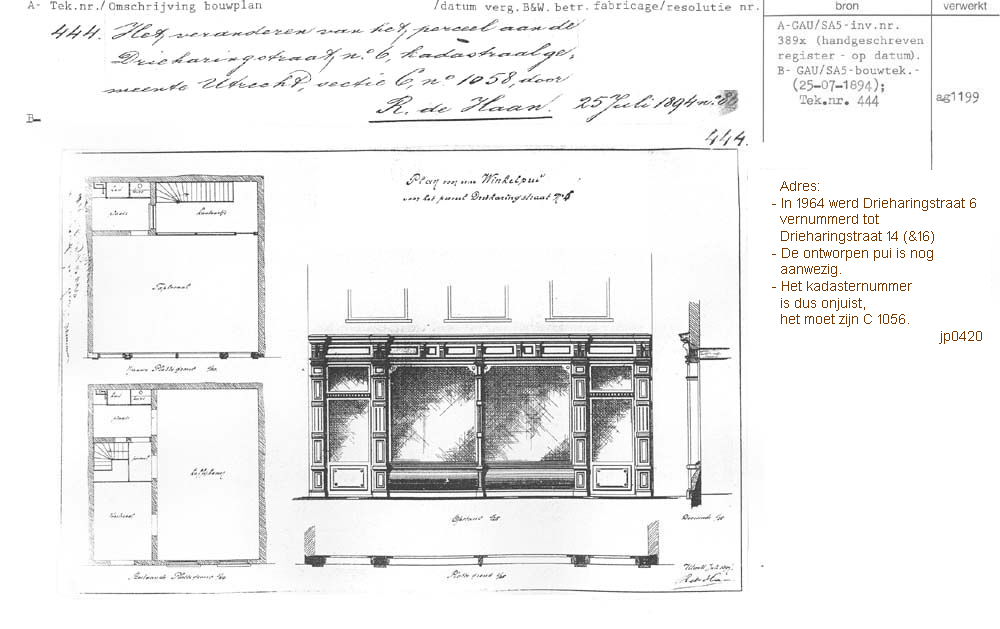 A- Tek.nr./Omschrijving bouwplan /datum verg.B&W. betr. fabricage/resolutie nr. bron verwerkt
444. Het veranderen van het perceel aan de
Drieharingstraat, nº. 6, kadastraal ge-
meente Utrecht, sectie C, nº 1058, door
R. de Haan. 25 Juli 1894 nº.
B-
A-GAU/SA5-inv.nr.
389x (handgeschreven
register - op datum).
B- GAU/SA5-bouwtek.-
(25-07-1894);
Tek.nr. 444
ag1199
444.
Plan voor een Winkelpui
voor het perceel Drieharingstraat Nº 6
Adres:
- In 1964 werd Drieharingstraat 6
vernummerd tot
Drieharingstraat 14 (&16)
- De ontworpen pui is nog
aanwezig.
- Het kadasternummer
is dus onjuist,
het moet zijn C 1056.
jp0420
plaats
Nieuwe Plattegrond
plaats
Bestaande Plattegrond
Opstand
Doorsnede
Plattegrond
Utrecht, Juli